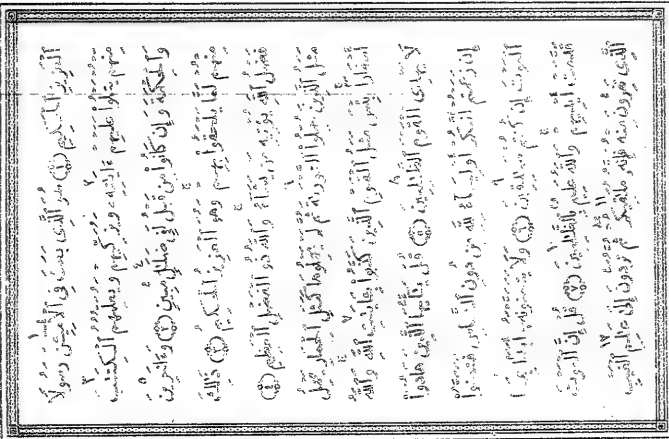 العَزِيزِ الحَكِيمِ (١) هُوَ الَّذِي بَعَثَ فِي الأُمِّيِّـنَ رَسُولًا
مِنْهُمْ يَتْلُوا عَلَيْهِمْ ءَايَٰتِهِ وَيُزَكِّيهِمْ وَيُعَلِّمُهُمُ الكِتَٰبَ
وَالحِكْمَةَ وَإِنْ كَانُوا مِنْ قَبْلُ لَفِي ضَلَٰلٍ مُبِينٍ (٢) وَءَاخَرِينَ
مِنْهُمْ لَمَّا يَلْحَقُوا بِهِمْ وَهُوَ العَزِيزُ الحَكِيمُ (٣) ذَٰلِكَ
فَضْلُ اللَّهِ يُؤْتِيهِ مَنْ يَشَاءُ وَاللَّهُ ذُو الفَضْلِ العَظِيمِ (٤)
مَثَلُ الَّذِينَ حُمِّلُوا التَّوْرَىٰةَ ثُمَّ لَمْ يَحْمِلُوهَا كَمَثَلِ الحِمَارِ يَحْمِلُ
أَسْفَارًا بِئْسَ مَثَلُ القَوْمِ الَّذِينَ كَذَّبُوا بِـَٔايَٰتِ اللَّهِ وَاللَّهُ
لَا يَهْدِي القَوْمَ الظَّٰلِمِينَ (٥) قُلْ يَٰأَيُّهَا الَّذِينَ هَادُوا
إِنْ زَعَمْتُمْ أَنَّكُمْ أَوْلِيَاءُ لِلَّهِ مِنْ دُونِ النَّاسِ فَتَمَنَّوُا
المَوْتَ إِنْ كُنْتُمْ صَٰدِقِينَ (٦) وَلَا يَتَمَنَّوْنَهُ أَبَدًا بِمَا
قَدَّمَتْ أَيْدِيهِمْ وَاللَّهُ عَلِيمٌ بِالظَّٰلِمِينَ (٧) قُلْ إِنَّ المَوْتَ
الَّذِي تَفِرُّونَ مِنْهُ فَإِنَّهُ مُلَٰقِيكُمْ ثُمَّ تُرَدُّونَ إِلَىٰ عَٰلِمِ الغَيْبِ